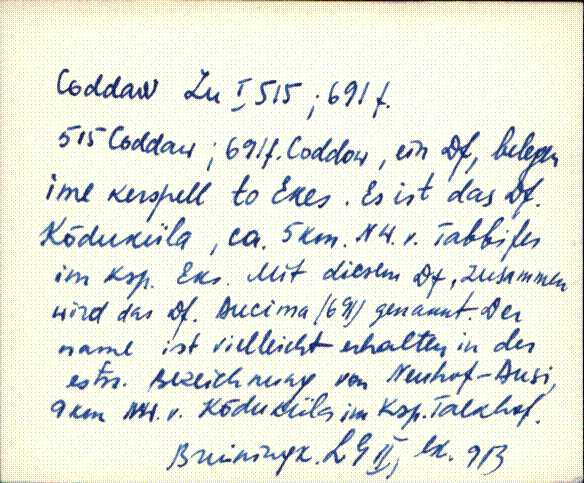 Coddaw Zu I 515 ; 691 f.
515 Coddaw ; 691 f. Coddow, ein Df, belegen
ime kerspell to Ekes. Es ist das Df.
Kõduküla, ca. 5 km. NW. v. Tabbifer
im Ksp. Eks. Mit diesem Df, zusammen
wird das Df. Aucima (691) genannt. Der
name ist vielleicht erhalten in der
estn. Bezeichnung von Neuhof-Ausi,
9 km NW. v. Kõduküla im Ksp. Talkhof.
Bruiningk. LG II,